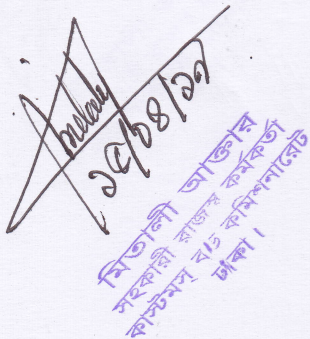 ১৫/০৪/১৯
মিতালী আক্তার
সহকারী রাজস্ব কর্মকর্তা
কাস্টমস্ বন্ড কমিশনারেট
ঢাকা।